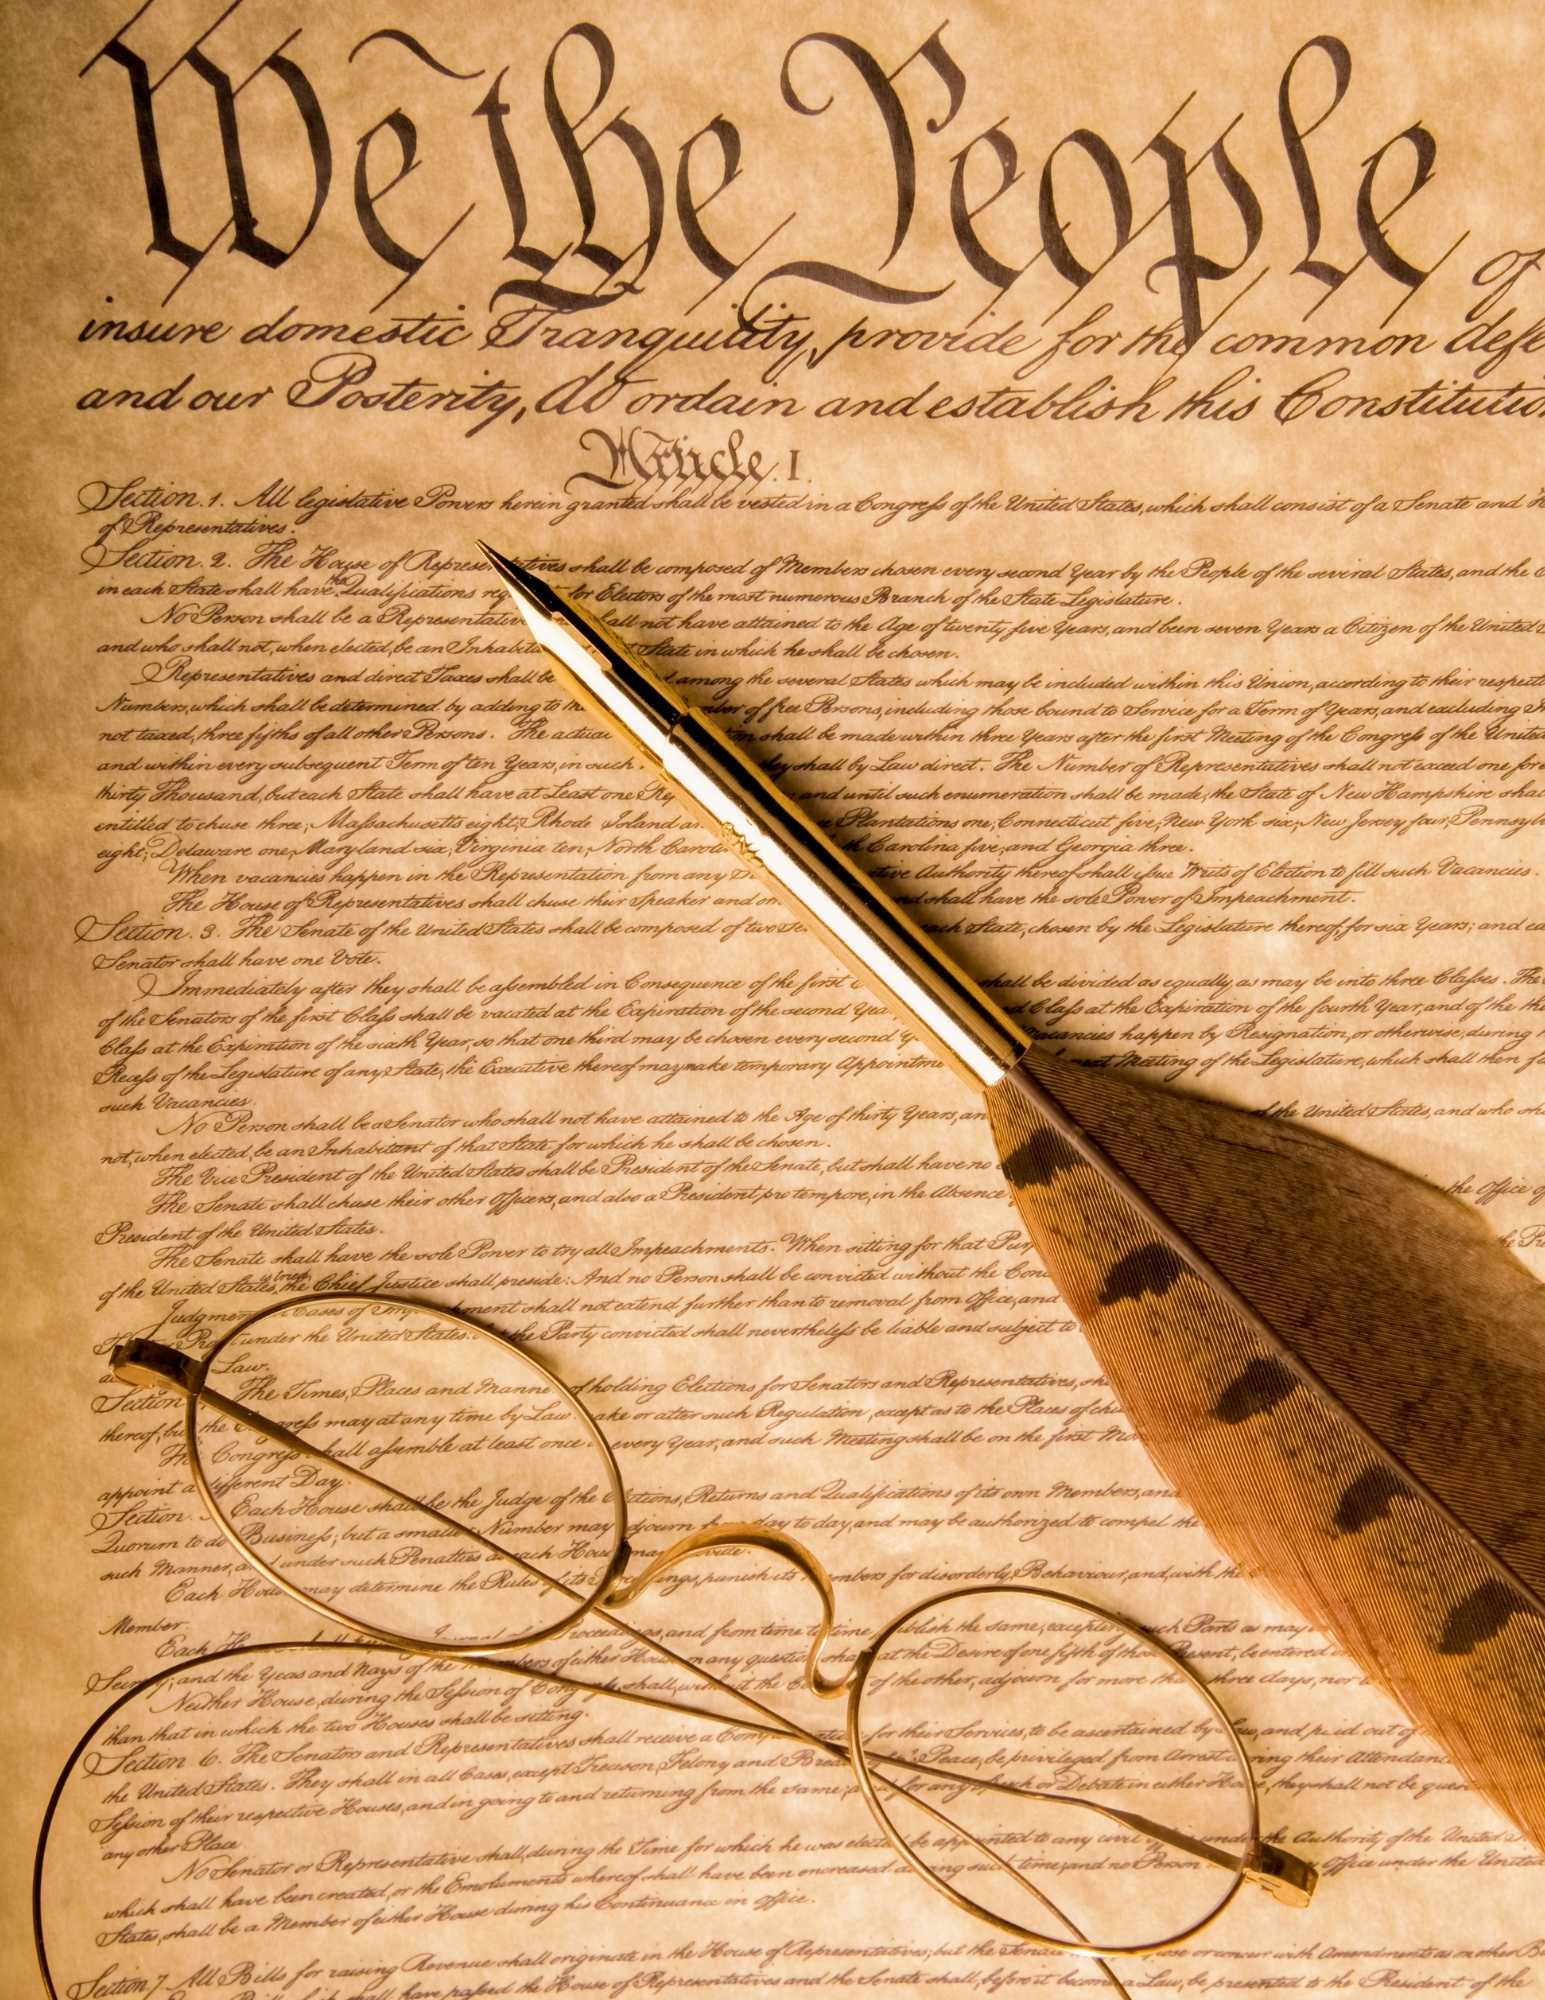 We the People of
insure domestic Tranquility, provide for the common defe
and our Posterity, do ordain and establish this Constitutio
Article. I.
Section. 1. All legislative Powers herein granted shall be vested in a Congress of the United States, which shall consist of a Senate and H
of Representatives.
Section. 2. The House of Represen tatives shall be composed of Members chosen every second Year by the People of the several States, and the
in each State shall have the Qualifications req for Electors of the most numerous Branch of the State Legislature.
No Person shall be a Representative shall not have attained to the Age of twenty five Years, and been seven Years a Citizen of the United
and who shall not, when elected, be an Inhabita t State in which he shall be chosen.
Representatives and direct Taxes shall be among the several States which may be included within this Union, according to their respecti
Numbers, which shall be determined by adding to the mber of free Persons, including those bound to Service for a Term of Years, and excluding
not taxed, three fifths of all other Persons. The actual shall be made within three Years after the first Meeting of the Congress of the United
and within every subsequent Term of ten Years, in such they shall by Law direct. The Number of Representatives shall not exceed one for
thirty Thousand, but each State shall have at Least one Re and until such enumeration shall be made, the State of New Hampshire shal
entitled to chuse three, Massachusetts eight, Rhode Island an e Plantations one, Connecticut five, New York six, New Jersey four, Pennsylv
eight, Delaware one, Maryland six, Virginia ten, North Caroli th Carolina five, and Georgia three.
When vacancies happen in the Representation from any St tive Authority thereof shall issue Writs of Election to fill such Vacancies.
The House of Representatives shall chuse their Speaker and ot nd shall have the sole Power of Impeachment.
Section. 3. The Senate of the United States shall be composed of two Se each State, chosen by the Legislature thereof, for six Years; and ea
Senator shall have one Vote.
Immediately after they shall be assembled in Consequence of the first shall be divided as equally as may be into three Classes. The
of the Senators of the first Class shall be vacated at the Expiration of the second Year d Class at the Expiration of the fourth Year, and of the
Class at the Expiration of the sixth Year, so that one third may be chosen every second Y Vacancies happen by Resignation, or otherwise, during
Recess of the Legislature of any State, the Executive thereof may make temporary Appointme next Meeting of the Legislature, which shall then f
such Vacancies.
No Person shall be a Senator who shall not have attained to the Age of thirty Years, an of the United States, and who sh
not, when elected, be an Inhabitant of that State for which he shall be chosen.
The Vice President of the United States shall be President of the Senate, but shall have no
The Senate shall chuse their other Officers, and also a President pro tempore, in the Absence the Office of
President of the United States.
The Senate shall have the sole Power to try all Impeachments. When sitting for that Purp the
of the United States is tried, the Chief Justice shall preside: And no Person shall be convicted without the Conc
Judgment Cases of Imp hment shall not extend further than to removal from Office, and
under the United States: the Party convicted shall nevertheless be liable and subject to
Law.
Section The Times, Places and Manne of holding Elections for Senators and Representatives, sh
thereof; but the Congress may at any time by Law make or alter such Regulation, except as to the Places of chu
The Congress shall assemble at least once every Year, and such Meeting shall be on the first Mon
appoint a different Day.
Section. Each House shall be the Judge of the Elections, Returns and Qualifications of its own Members, and
Quorum to do Business; but a smaller Number may adjourn from day to day, and may be authorized to compel the
such Manner, and under such Penalties as each House may provide.
Each House may determine the Rules of its Proceedings, punish its Members for disorderly Behaviour, and, with the
Member.
Each Proceedings, and from time to time publish the same, excepting such Parts as may
Secrecy; and the Yeas and Nays of the Members of either House on any question shall at the Desire of one fifth of those Present, be entered
Neither House, during the Session of Congress, shall, without the of the other, adjourn for more than three days, nor
than that in which the two Houses shall be sitting.
Section 6. The Senators and Representatives shall receive a Comp for their Services, to be ascertained by Law, and paid out of
the United States. They shall in all Cases, except Treason, Felony and Breach of the Peace, be privileged from Arrest during their Attendanc
Session of their respective Houses, and in going to and returning from the same; and for any Speech or Debate in either House, they shall not be ques
any other Place.
No Senator or Representative shall, during the Time for which he was elected be appointed to any civil under the Authority of the United
which shall have been created, or the Emoluments whereof shall have been encreased during such time; and no Person Office under the United
States, shall be a Member of either House during his Continuance in Office.
Section 7. All Bills for raising Revenue shall originate in the House of Representatives; but the Senate propose or concur with Amendments as on other Bi
shall have passed the House of Representatives and the Senate, shall, before it become a Law, be presented to the President of the